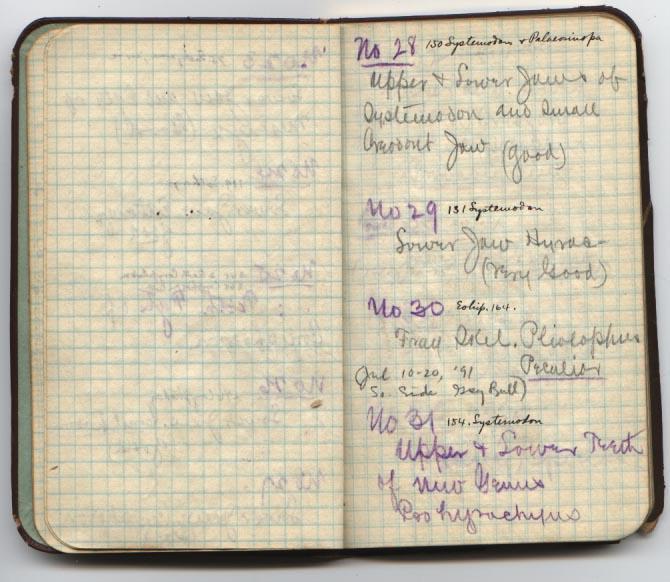 No 28 150 Systemodon & Palaeosinopa
Upper & Lower Jaws of
Systemodon and Small
Creodont Jaw (good)
No 29 151 Systemodon
Lower Jaw Hyrac-
(Very Good)
No 30 Eohip. 164.
Frag Skel. Pliolophus
Peculiar
(Jul 10-20, '91
So. Side Grey Bull)
No 31 154. Systemodon
Upper & Lower Teeth
of New Genus